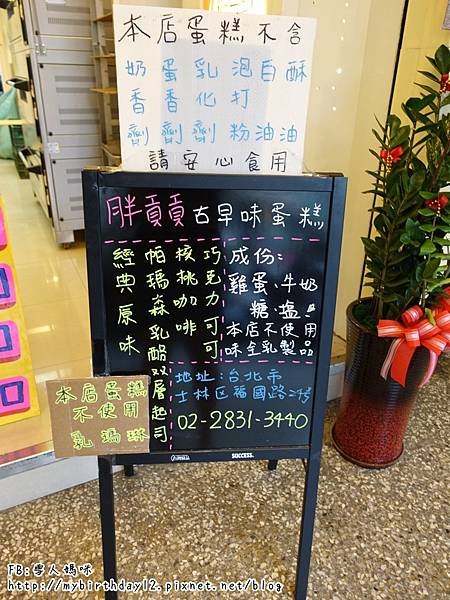 本店蛋糕不含
奶蛋乳泡白酥
香香化打
劑劑劑粉油油
請安心食用
胖貢貢古早味蛋糕
巧克力可可
核桃咖啡
帕瑪森乳酪双層起司
經典原味
成份:
雞蛋、牛奶
糖、塩。
本店不使用
味全乳製品
地址:台北市
士林区福國路24号
02-2831-3440
本店蛋糕
不使用
乳瑪琳
SUCCESS.
FB:學人媽咪
http://mybirthday12.pixnet.net/blog